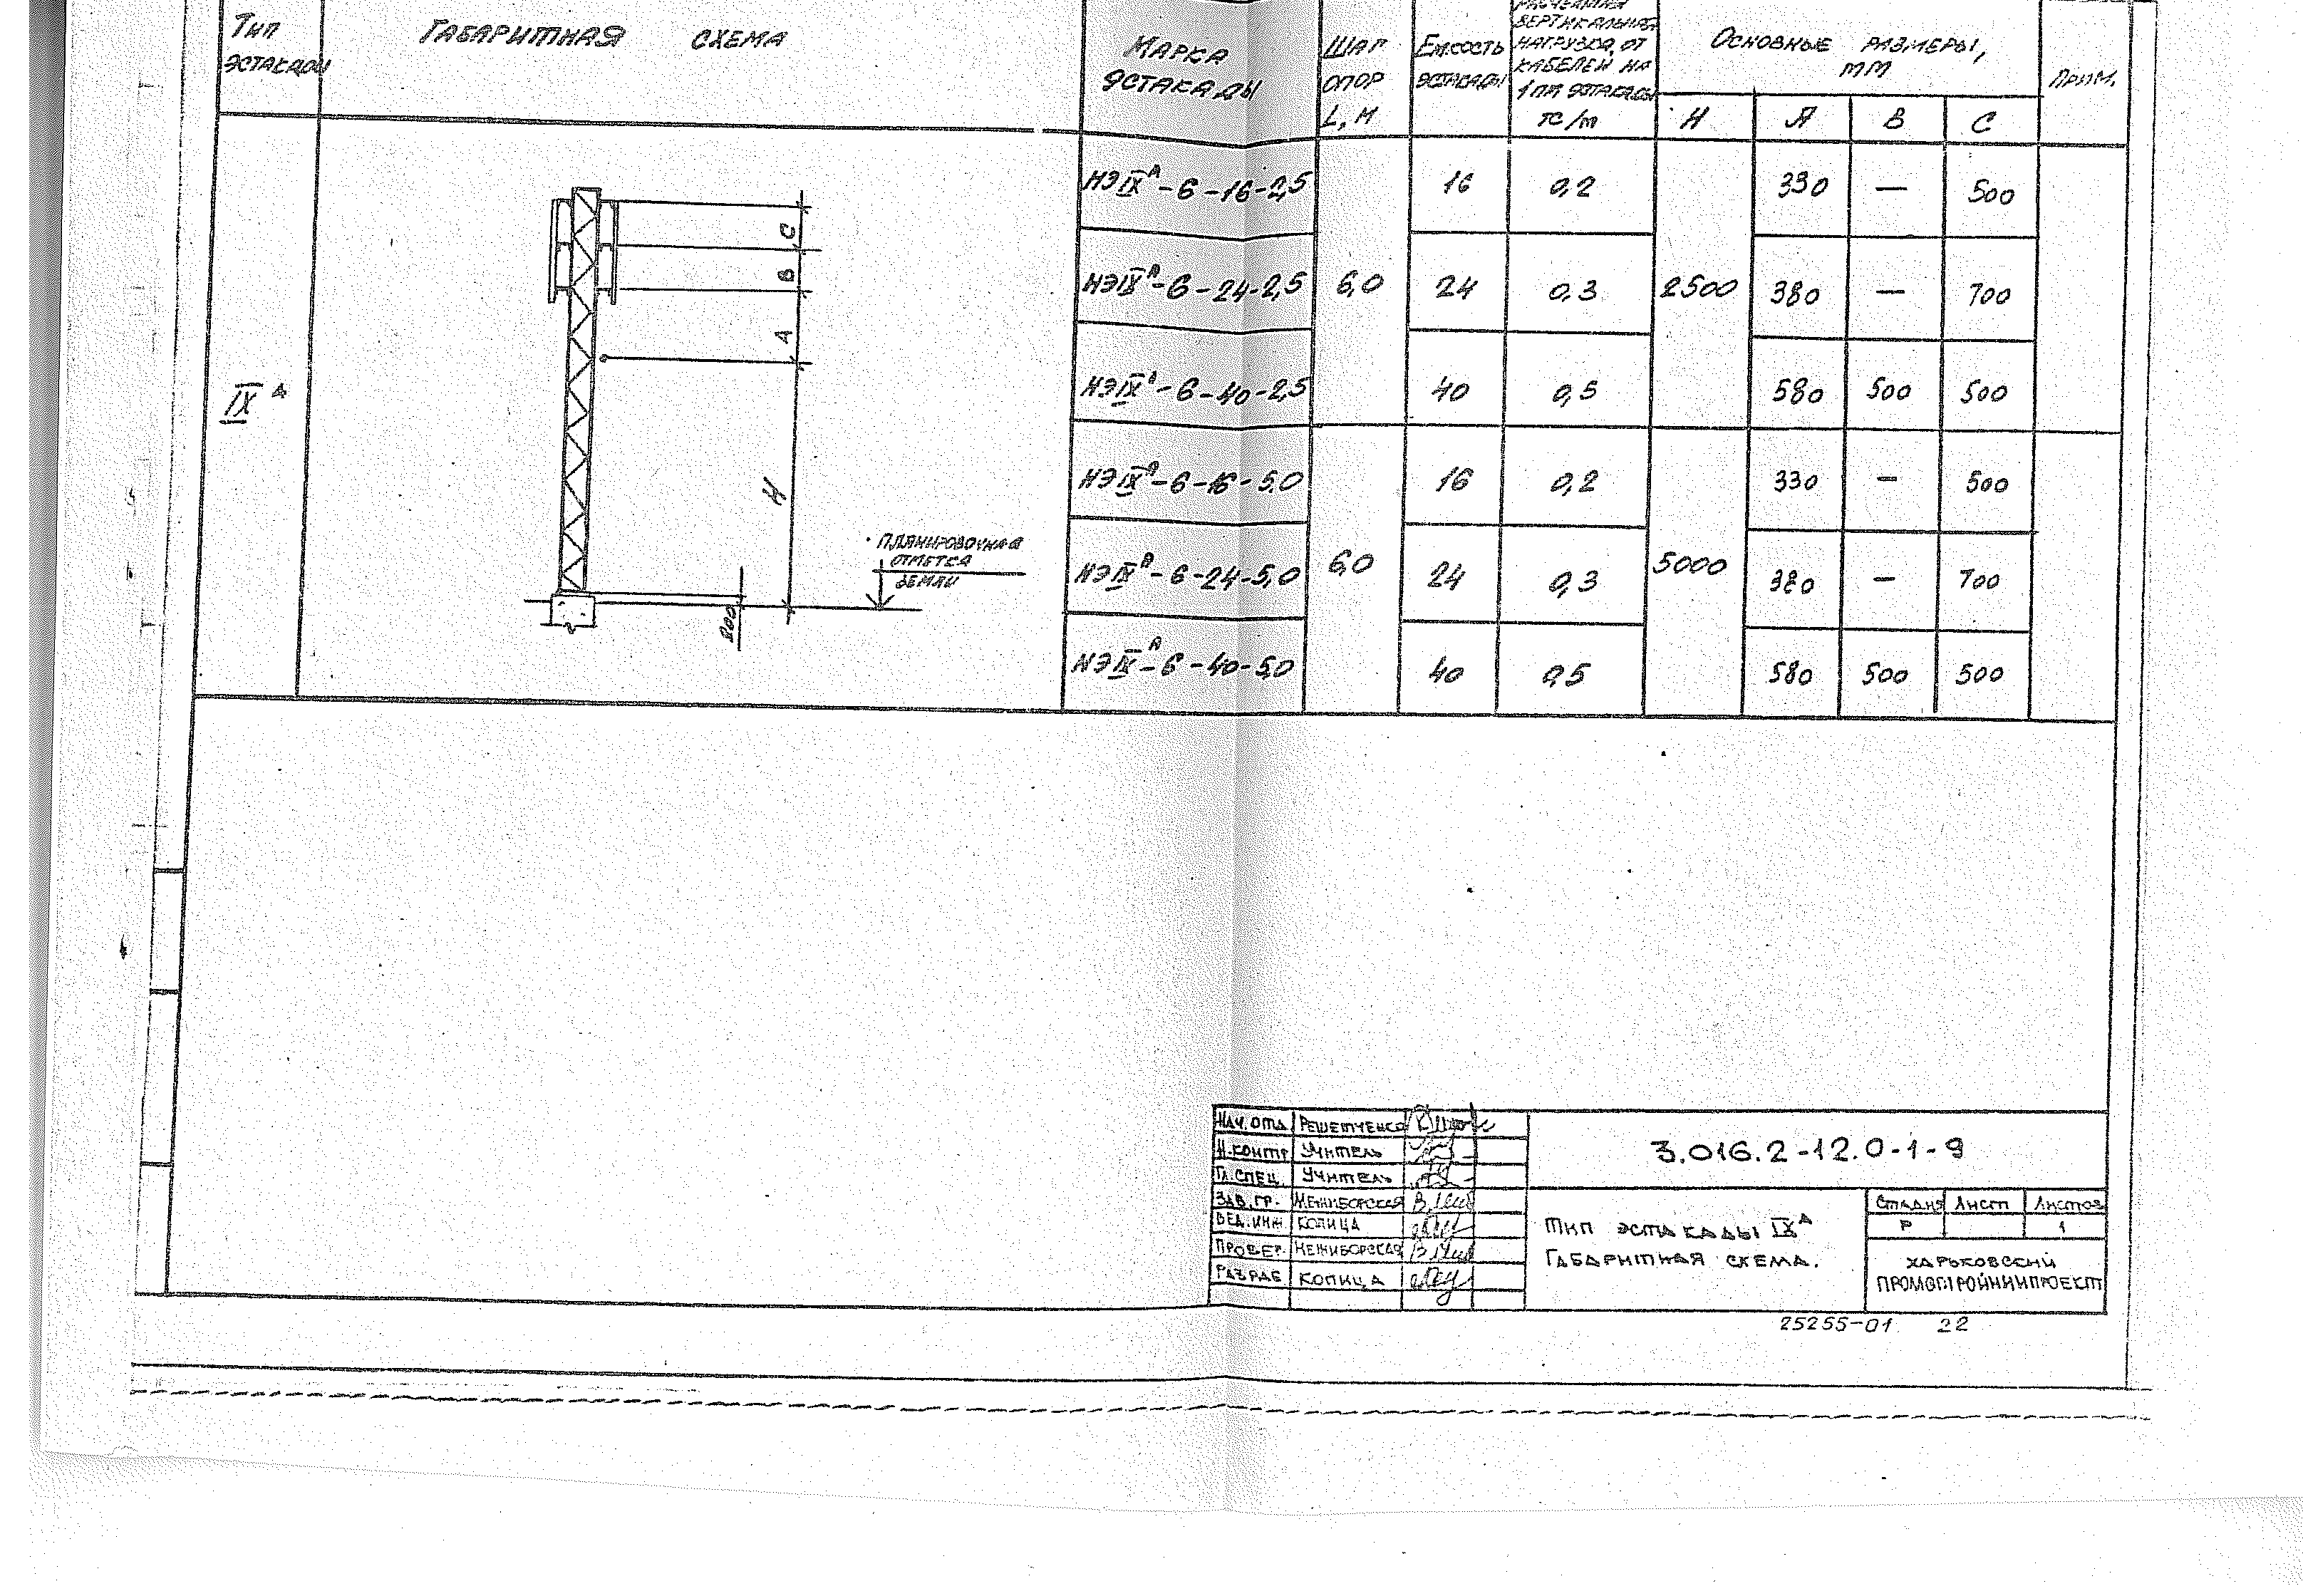 Тип эстакады
Габаритная схема
Марка эстакады
Шаг опор L, м
Емкость эстакады
вертикальная
нагрузка от
кабелей на
1 пм эстакады
тс/м
Основные размеры, мм
Прим.
Н А В С
IXᴬ
С
В
А
Н
200
Планировочная
отметка
земли
НЭIXᴬ-6-16-2,5 16 0,2 330 — 500
НЭIXᴬ-6-24-2,5 6,0 24 0,3 2500 380 — 700
НЭIXᴬ-6-40-2,5 40 0,5 580 500 500
НЭIXᴬ-6-16-5,0 16 0,2 330 — 500
НЭIXᴬ-6-24-5,0 6,0 24 0,3 5000 380 — 700
НЭIXᴬ-6-40-5,0 40 0,5 580 500 500
Нач. отд. Решетченко
Н.контр Учитель
Гл. спец. Учитель
Зав. гр. Межиборская
Вед. инж. Копица
Провер. Межиборская
Разраб Копица
3.016.2-12.0-1-9
Тип эстакады IXᴬ
Габаритная схема.
Стадия Лист Листов
Р 1
Харьковский
ПРОМСТРОЙНИИПРОЕКТ
25255-01 22